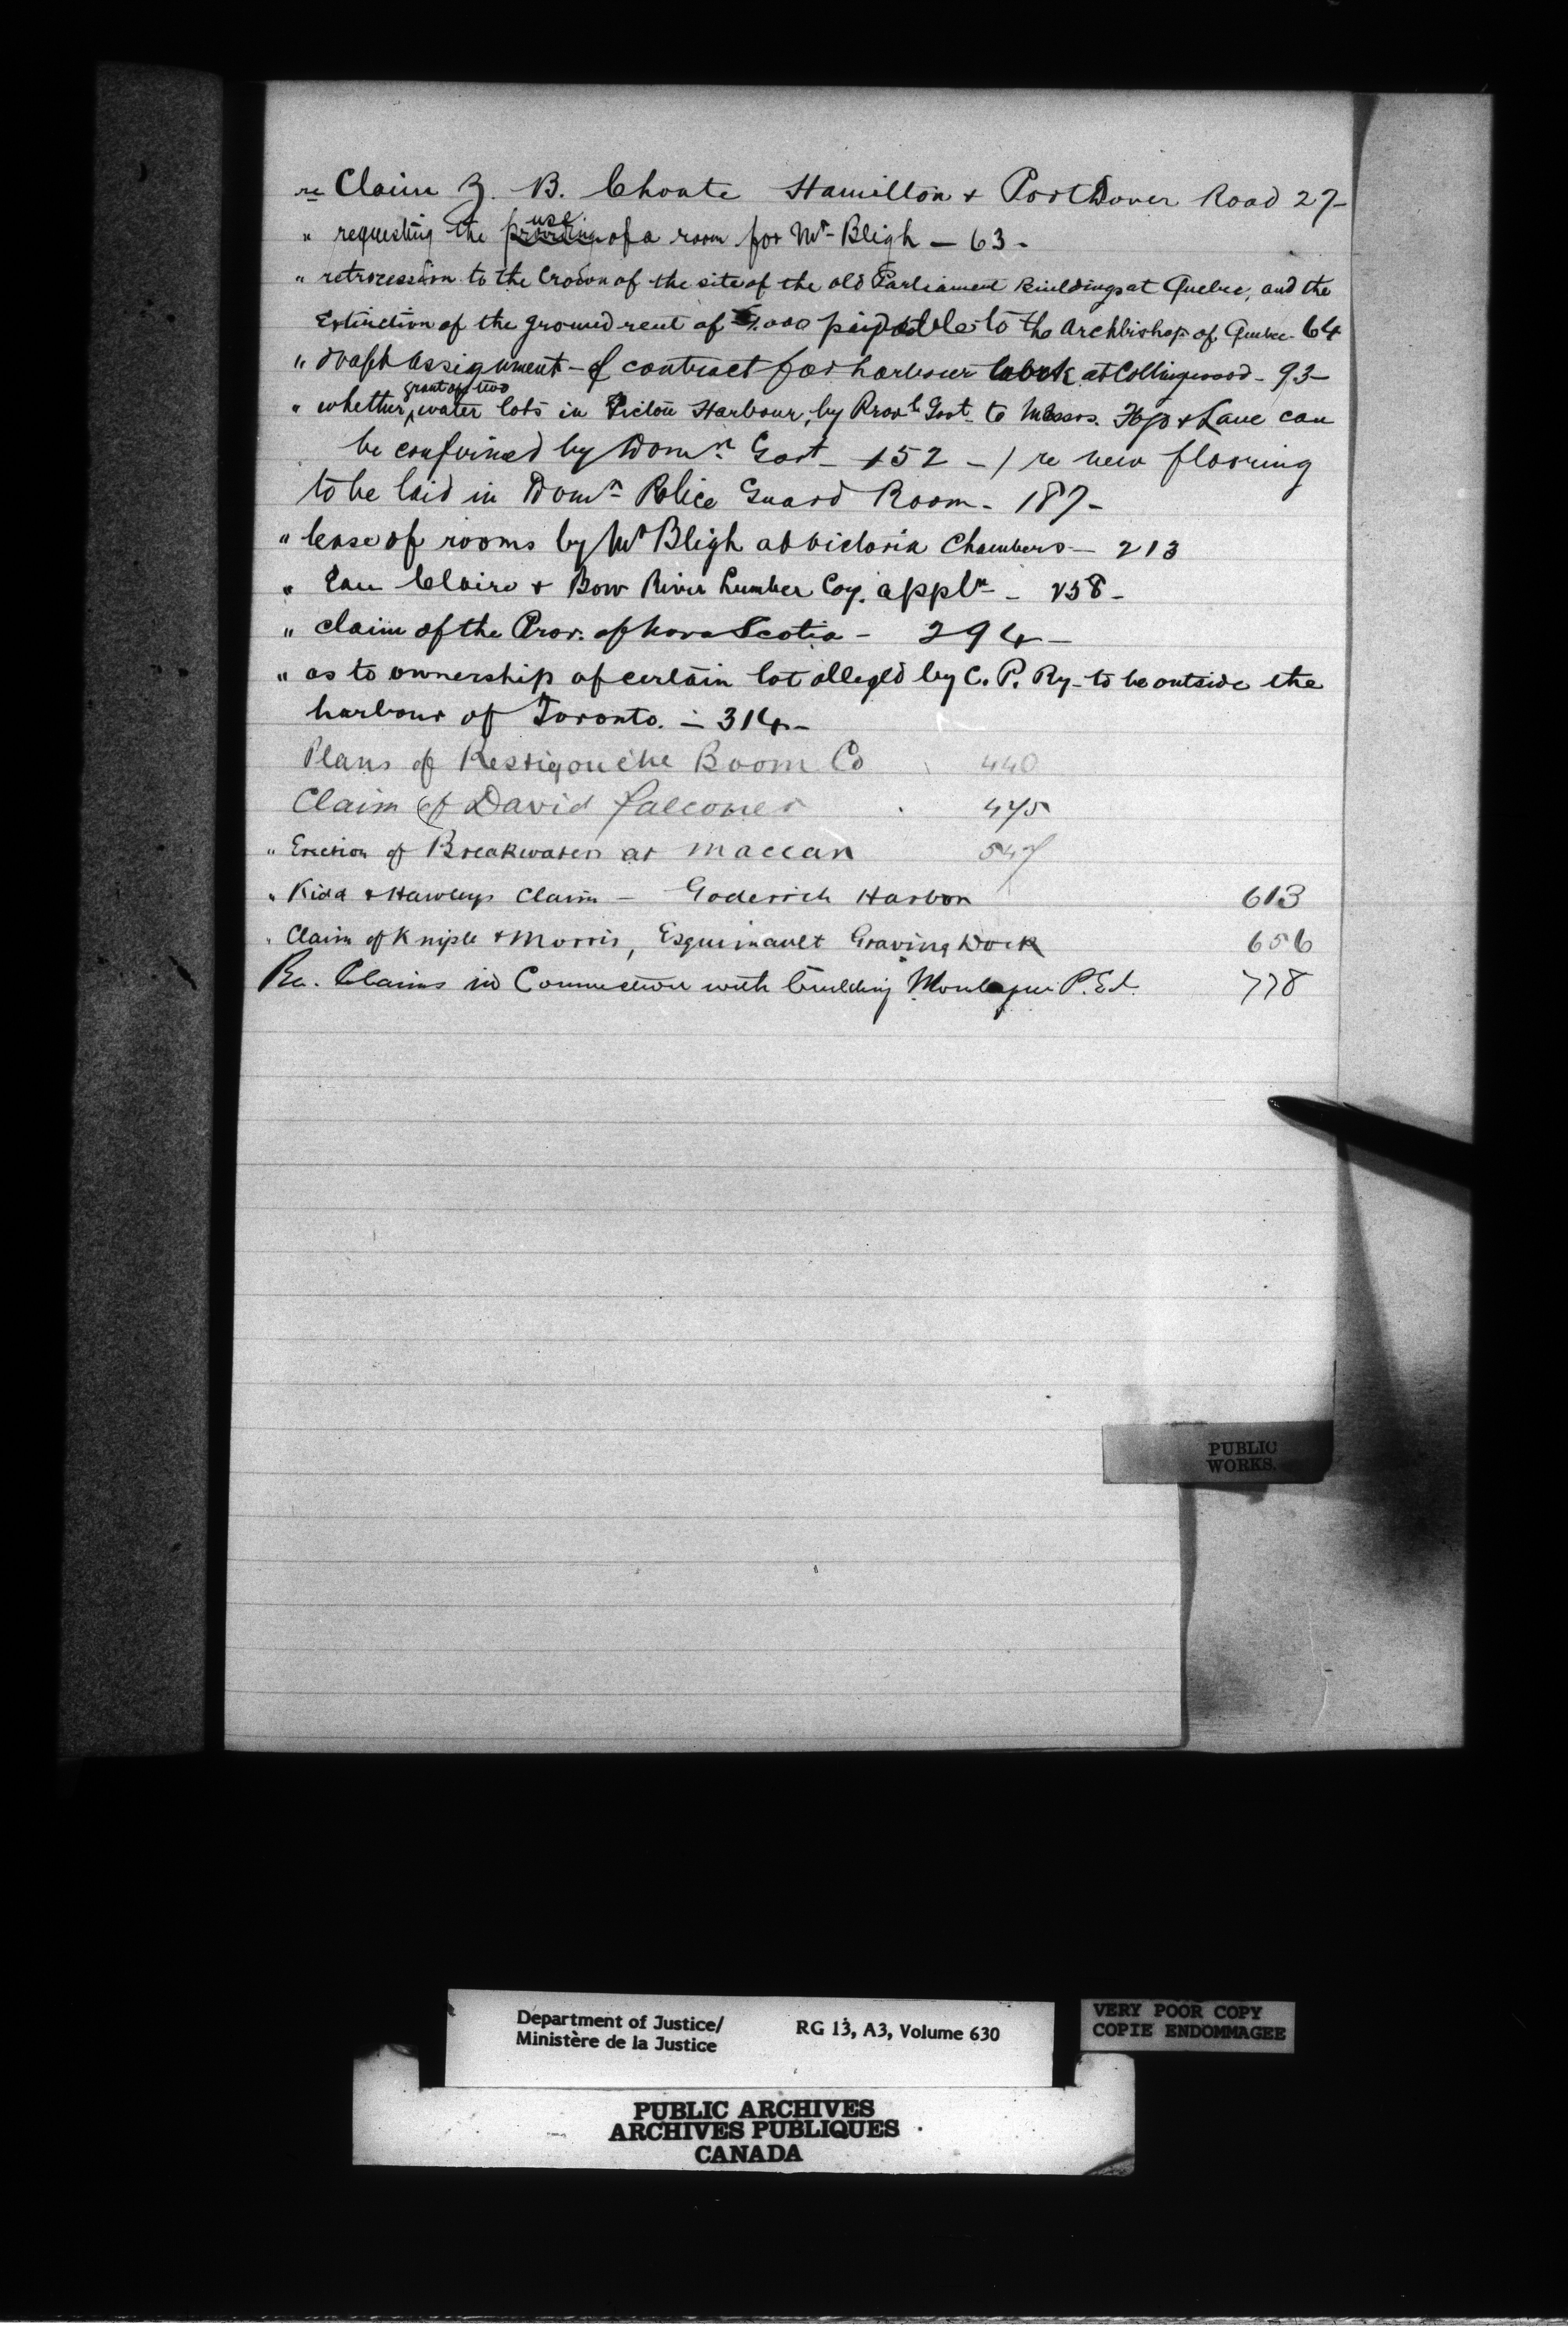 re Claim Z. B. Choate Hamilton & Port Dover Road 27-
" requesting the use of a room for Mr Bligh - 63 -
" retrocession to the Crown of the site of the old Parliament Buildings at Quebec, and the
Extinction of the ground rent of payable to the Archbishop of Quebec - 64
" draft assignment - of contract for harbour work at Collingwood - 93 -
" whether grant of two water lots in Pictou Harbour, by Provl Govt to Messrs. & Lane can
be confirmed by Domn Govt - 152 - / re new flooring
to be laid in Domn Police Guard Room - 187 -
" lease of rooms by Mr Bligh at Victoria Chambers - 213
" Eau Claire & Bow River Lumber Coy. appln - 258 -
" claim of the Prov. of Nova Scotia - 294 -
" as to ownership of certain lot alleged by C. P. Ry - to be outside the
harbour of Toronto - 314 -
Plans of Restigouche Boom Co 440
Claim of David Falconer 475
" Erection of Breakwaters at Maccan 547
" Kidd & Hawleys Claim - Goderich Harbor 613
" Claim of Kniple & Morris, Esquimault Graving Dock 656
Re. Claims in Connection with building Montague P.E.I. 778
PUBLIC
WORKS.
Department of Justice/
Ministère de la Justice
RG 13, A3, Volume 630
VERY POOR COPY
COPIE ENDOMMAGEE
PUBLIC ARCHIVES
ARCHIVES PUBLIQUES
CANADA